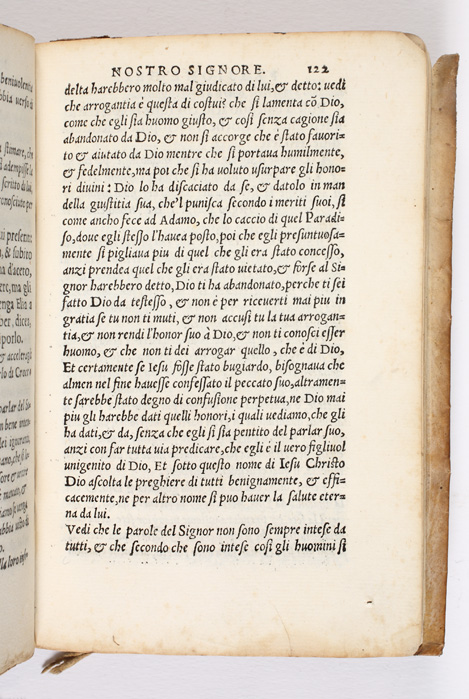 NOSTRO SIGNORE. 122
delta harebbero molto mal giudicato di lui,& detto: uedi
che arrogantia è questa di costui? che si lamenta cō Dio,
come che egli sia huomo giusto, & così senza cagione sia
abandonato da Dio, & non si accorge che è stato fauori-
to & aiutato da Dio mentre che si portaua humilmente,
& fedelmente,ma poi che si ha voluto usurpare gli hono-
ri diuini: Dio lo ha discaciato da se, & datolo in man
della giustitia sua, che'l punisca secondo i meriti suoi, si
come anche fece ad Adamo, che lo caccio di quel Paradi-
so,doue egli stesso l'hauea posto,poi che egli presuntuosa-
mente si pigliaua piu di quel che gli era stato concesso,
anzi prendea quel che gli era stato uietato,& forse al Si-
gnor harebbero detto, Dio ti ha abandonato, perche ti sei
fatto Dio da testesso, & non è per riceuerti mai piu in
gratia se tu non ti muti, & non accusi tu la tua arrogan-
tia,& non rendi l'honor suo à Dio,& non ti conosci esser
huomo, & che non ti dei arrogar quello, che è di Dio,
Et certamente se Iesu fosse stato bugiardo, bisognaua che
almen nel fine hauesse confessato il peccato suo,altramen-
te sarebbe stato degno di confusione perpetua,ne Dio mai
piu gli harebbe dati quelli honori,i quali uediamo,che gli
ha dati,& da, senza che egli si sia pentito del parlar suo,
anzi con far tutta uia predicare,che egli è il uero figliuol
unigenito di Dio, Et sotto questo nome di Iesu Christo
Dio ascolta le preghiere di tutti benignamente, & effi-
cacemente,ne per altro nome si puo hauer la salute eter-
na da lui.
Vedi che le parole del Signor non sono sempre intese da
tutti,& che secondo che sono intese così gli huomini si